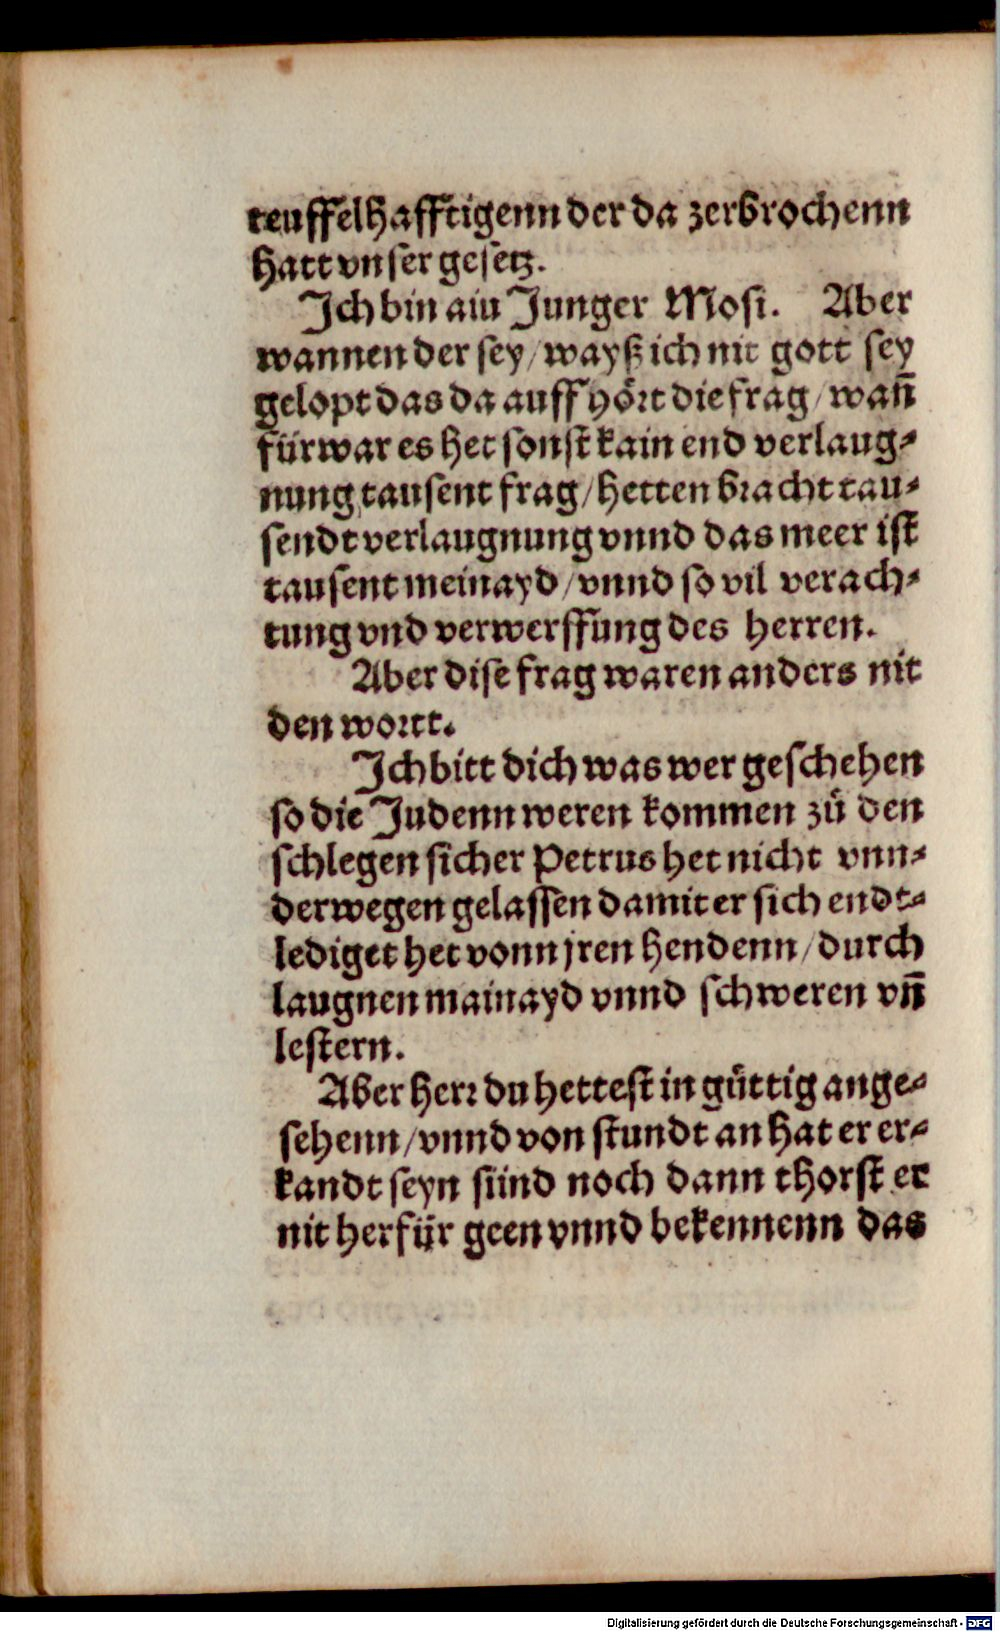 teuffelhafftigenn der da zerbrochenn
hatt vnser gesetz.
Ich bin ain Junger Mosi. Aber
wannen der sey/ wayß ich nit gott sey
gelopt das da auff hört die frag/ wañ
fürwar es het sonst kain end verlaug⸗
nung tausent frag/ hetten bracht tau⸗
sendt verlaugnung vnnd das meer ist
tausent meinayd/ vnnd so vil verach⸗
tung vnd verwerffung des herren.
Aber dise frag waren anders nit
den wortt.
Ich bitt dich was wer geschehen
so die Judenn weren kommen zů den
schlegen sicher Petrus het nicht vnn⸗
derwegen gelassen damit er sich endt⸗
lediget het vonn jren hendenn/ durch
laugnen mainayd vnnd schweren vñ
lestern.
Aber herr du hettest in gůttig ange⸗
sehenn/ vnnd von stundt an hat er er⸗
kandt seyn sünd noch dann thorst er
nit herfür geen vnnd bekennenn das
Digitalisierung gefördert durch die Deutsche Forschungsgemeinschaft - DFG